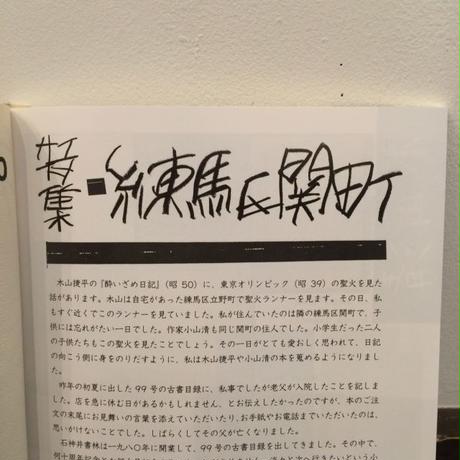 特集
練馬区関町
木山捷平の『酔いざめ日記』(昭 50)に、東京オリンピック(昭 39)の聖火を見た
話があります。木山は自宅があった練馬区立野町で聖火ランナーを見ます。その日、私
もすぐ近くでこのランナーを見ていました。私が住んでいたのは隣の練馬区関町で、子
供には忘れがたい一日でした。作家小山清も同じ関町の住人でした。小学生だった二人
の子供たちもこの聖火を見たことでしょう。その一日がとても愛おしく思われて、日記
の向こう側に身をのりだすように、私は木山捷平や小山清の本を蒐めるようになりまし
た。
昨年の初夏に出した 99 号の古書目録に、私事でしたが老父が入院したことを記しま
した。店を急に休む日があるかもしれません、とお伝えしたかったのですが、本のご注
文の末尾にお見舞いの言葉を添えていただいたり、お手紙やお電話までいただいたのは、
思いがけないことでした。しばらくしてその父が亡くなりました。
石神井書林は一九八〇年に開業して、99 号の古書目録を出してきました。その中で、